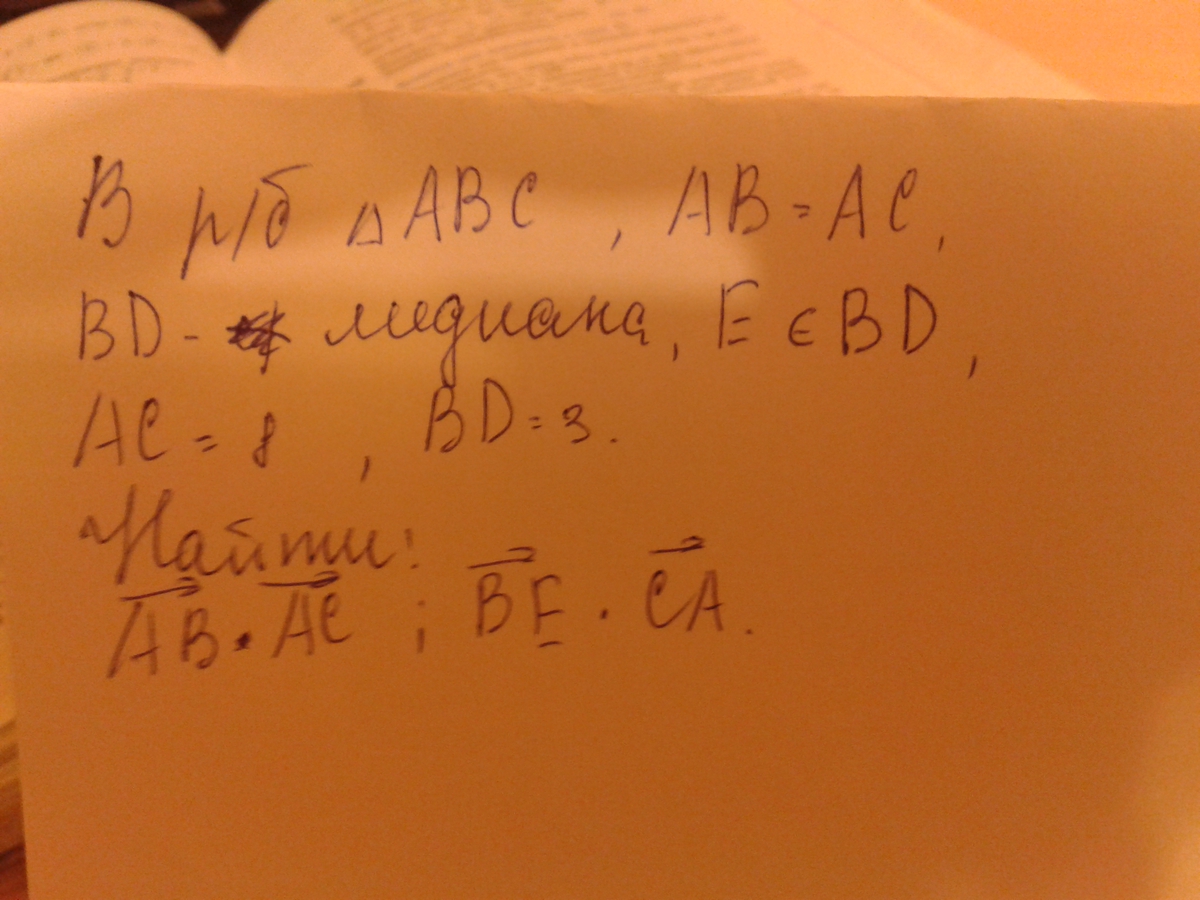 В р/б △ABC, AB = AC,
BD - медиана, E ∈ BD,
AC = 8, BD = 3.
Найти:
AB · AC ; BE · CA.